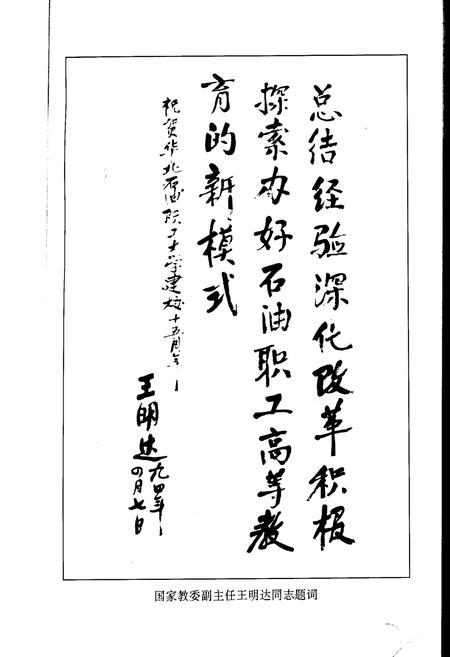 总结经验深化改革积极
探索办好石油职工高等教
育的新模式
祝贺华北石油职工大学建校十五周年
王明达
九四年
四月七日
国家教委副主任王明达同志题词